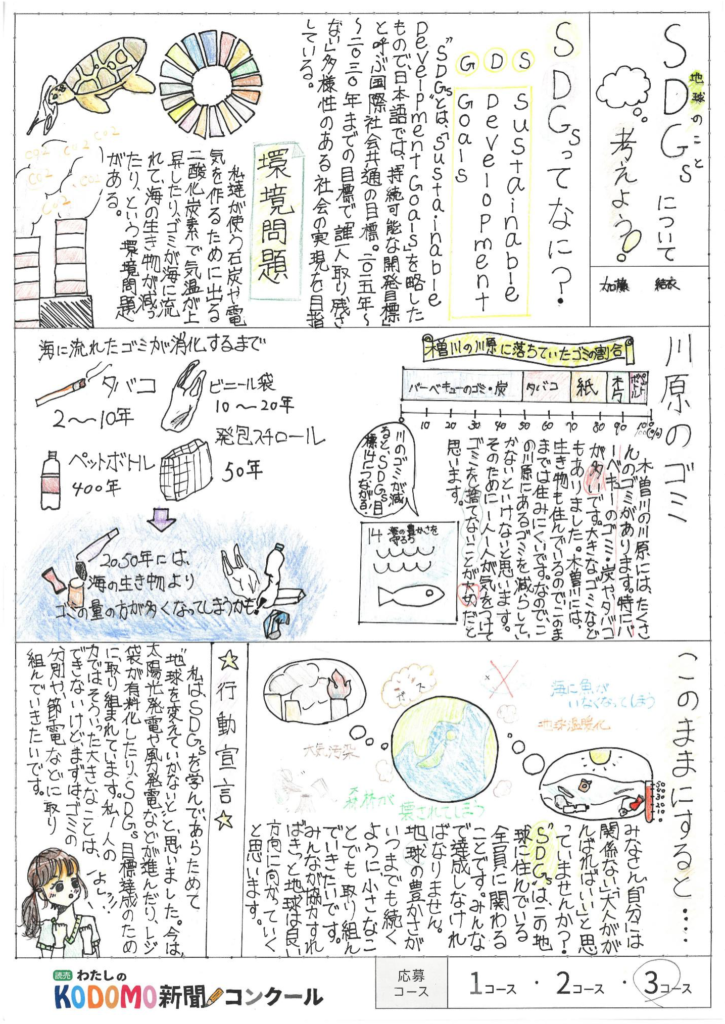 地球のこと
SDGsについて
考えよう!
加藤 結衣
SDGsってなに?
SDG
Sustainable
Development
Goals
"SDGsとは、「Sustainable
Development Goals」を略した
もので日本語では、「持続可能な開発目標」
と呼ぶ国際社会共通の目標。二〇一五年〜
〜二〇三〇年までの目標で「誰一人取り残さ
ない」多様性のある社会の実現を目指
している。
環境問題
私達が使う石炭や電
気を作るために出る
二酸化炭素で気温が上
昇したり、ゴミが海に流
れて、海の生き物が減っ
たり、という環境問題
がある。
CO2
CO2
CO2
CO2
川原のゴミ
木曽川の川原に落ちていたゴミの割合
バーベキューのゴミ・炭
タバコ
紙
木片
10 20 30 40 50 60 70 80 90 100(%)
木曽川の川原には、たくさ
んのゴミがあります。特にバ
ーベキューのゴミ・炭や、タバコ
が多いです。大きなゴミなど
もありました。木曽川には、
生き物も住んでいるのでこのま
までは住みにくいです。なのでこ
の川原にあるゴミを減らしてい
かないといけないと思います。
そのために一人一人が気をつけて
ゴミを捨てないことが大切だと
思います。
川のゴミが減
ると、SDGs目
標14につながる!
14 海の豊かさを
守ろう
海に流れたゴミが消化するまで
タバコ
2〜10年
ビニール袋
10〜20年
ペットボトル
400年
発泡スチロール
50年
2050年には、
海の生き物より
ゴミの量の方が多くなってしまうかも!
このままにすると・・・・
海に魚が
いなくなってしまう
地球温暖化
大気汚染
森林が
壊されてしまう
50
40
30
20
10
0
みなさん、「自分には
関係ない」「大人がが
んばればいい」と思
っていませんか?
"SDGs"は、この地
球に住んでいる
全員に関わる
ことです。みんな
で達成しなけれ
ばなりません。
地球の豊かさが
いつまでも続く
ように小さなこ
とでも取り組ん
でいきたいです。
みんなが協力すれ
ばきっと地球は良い
方向に向かっていく
と思います。
☆行動宣言☆
私はSDGsを学んであらためて
"地球を変えていかないと"と思いました。今は、
太陽光発電や風力発電などが進んだり、レジ
袋が有料化したり、SDGs目標達成のため
に取り組まれています。私一人の
力ではそういった大きなことは、
できないけどまずはゴミの
分別や、節電などに取り
組んでいきたいです。
よし!!
読売 わたしの
KODOMO新聞コンクール
応募
コース
1コース ・ 2コース ・ 3コース